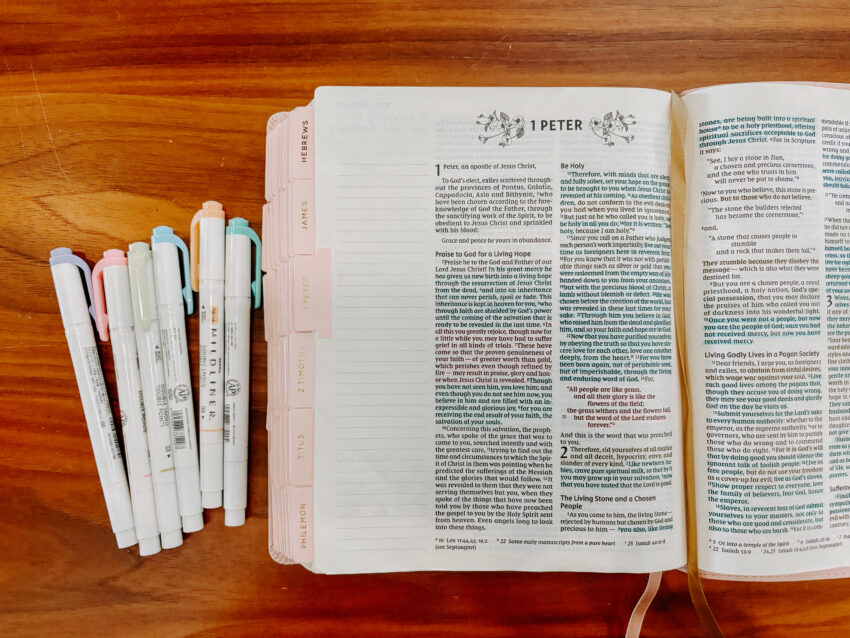 HEBREWS
JAMES
PETER
2 TIMOTHY
TITUS
PHILEMON
MILDLINER
DOUBLE POINTE
1 PETER
1 Peter, an apostle of Jesus Christ,
To God's elect, exiles scattered through-
out the provinces of Pontus, Galatia,
Cappadocia, Asia and Bithynia, ²who
have been chosen according to the fore-
knowledge of God the Father, through
the sanctifying work of the Spirit, to be
obedient to Jesus Christ and sprinkled
with his blood:
Grace and peace be yours in abundance.
Praise to God for a Living Hope
³Praise be to the God and Father of our
Lord Jesus Christ! In his great mercy he
has given us new birth into a living hope
through the resurrection of Jesus Christ
from the dead, ⁴and into an inheritance
that can never perish, spoil or fade. This
inheritance is kept in heaven for you, ⁵who
through faith are shielded by God's power
until the coming of the salvation that is
ready to be revealed in the last time. ⁶In
all this you greatly rejoice, though now for
a little while you may have had to suffer
grief in all kinds of trials. ⁷These have
come so that the proven genuineness of
your faith — of greater worth than gold,
which perishes even though refined by
fire — may result in praise, glory and hon-
or when Jesus Christ is revealed. ⁸Though
you have not seen him, you love him; and
even though you do not see him now, you
believe in him and are filled with an in-
expressible and glorious joy, ⁹for you are
receiving the end result of your faith, the
salvation of your souls.
¹⁰Concerning this salvation, the proph-
ets, who spoke of the grace that was to
come to you, searched intently and with
the greatest care, ¹¹trying to find out the
time and circumstances to which the Spir-
it of Christ in them was pointing when he
predicted the sufferings of the Messiah
and the glories that would follow. ¹²It
was revealed to them that they were not
serving themselves but you, when they
spoke of the things that have now been
told you by those who have preached
the gospel to you by the Holy Spirit sent
from heaven. Even angels long to look
into these things.
Be Holy
¹³Therefore, with minds that are alert
and fully sober, set your hope on the grace
to be brought to you when Jesus Christ is
revealed at his coming. ¹⁴As obedient chil-
dren, do not conform to the evil desires
you had when you lived in ignorance.
¹⁵But just as he who called you is holy, so
be holy in all you do; ¹⁶for it is written: "Be
holy, because I am holy."
¹⁷Since you call on a Father who judges
each person's work impartially, live out your
time as foreigners here in reverent fear.
¹⁸For you know that it was not with perish-
able things such as silver or gold that you
were redeemed from the empty way of life
handed down to you from your ancestors,
¹⁹but with the precious blood of Christ, a
lamb without blemish or defect. ²⁰He was
chosen before the creation of the world, but
was revealed in these last times for your
sake. ²¹Through him you believe in God,
who raised him from the dead and glorified
him, and so your faith and hope are in God.
²²Now that you have purified yourselves
by obeying the truth so that you have sin-
cere love for each other, love one another
deeply, from the heart. ²³For you have
been born again, not of perishable seed,
but of imperishable, through the living
and enduring word of God. ²⁴For,
"All people are like grass,
and all their glory is like the
flowers of the field;
the grass withers and the flowers fall,
²⁵but the word of the Lord endures
forever."
And this is the word that was preached
to you.
2 Therefore, rid yourselves of all malice
and all deceit, hypocrisy, envy, and
slander of every kind. ²Like newborn ba-
bies, crave pure spiritual milk, so that by it
you may grow up in your salvation, ³now
that you have tasted that the Lord is good.
The Living Stone and a Chosen
People
⁴As you come to him, the living Stone —
rejected by humans but chosen by God and
precious to him — ⁵you also, like living
a 16 Lev. 11:44,45; 19:2 b 22 Some early manuscripts from a pure heart c 25 Isaiah 40:6-8
(see Septuagint)
stones, are being built into a spiritual
house to be a holy priesthood, offering
spiritual sacrifices acceptable to God
through Jesus Christ. ⁶For in Scripture
it says:
"See, I lay a stone in Zion,
a chosen and precious cornerstone,
and the one who trusts in him
will never be put to shame."
⁷Now to you who believe, this stone is pre-
cious. But to those who do not believe,
"The stone the builders rejected
has become the cornerstone,"
⁸and,
"A stone that causes people to
stumble
and a rock that makes them fall."
They stumble because they disobey the
message — which is also what they were
destined for.
⁹But you are a chosen people, a royal
priesthood, a holy nation, God's spe-
cial possession, that you may declare
the praises of him who called you out
of darkness into his wonderful light.
¹⁰Once you were not a people, but now
you are the people of God; once you had
not received mercy, but now you have
received mercy.
Living Godly Lives in a Pagan Society
¹¹Dear friends, I urge you, as foreigners
and exiles, to abstain from sinful desires,
which wage war against your soul. ¹²Live
such good lives among the pagans that,
though they accuse you of doing wrong,
they may see your good deeds and glorify
God on the day he visits us.
¹³Submit yourselves for the Lord's sake
to every human authority: whether to the
emperor, as the supreme authority, ¹⁴or to
governors, who are sent by him to punish
those who do wrong and to commend
those who do right. ¹⁵For it is God's will
that by doing good you should silence the
ignorant talk of foolish people. ¹⁶Live as
free people, but do not use your freedom
as a cover-up for evil; live as God's slaves.
¹⁷Show proper respect to everyone, love
the family of believers, fear God, honor
the emperor.
¹⁸Slaves, in reverent fear of God submit
yourselves to your masters, not only to
those who are good and considerate, but
also to those who are harsh. ¹⁹For it is com-